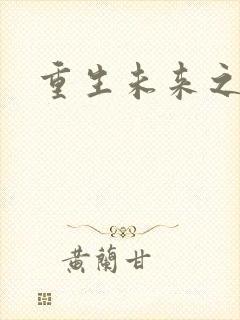 重生未来之
黄兰甘